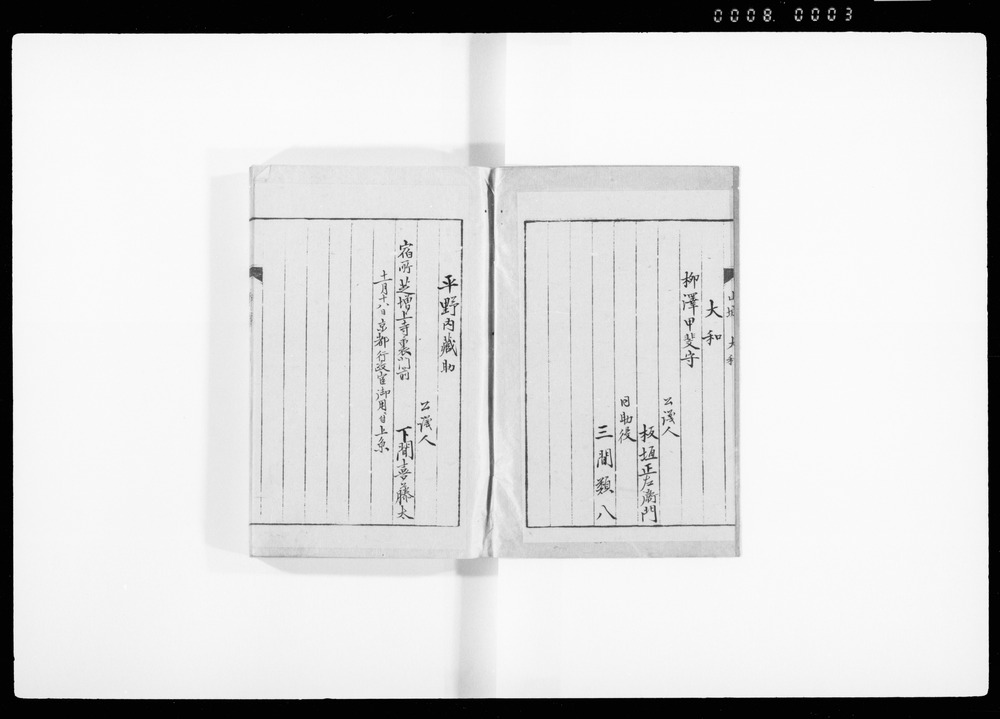 0008. 0003
大和
柳澤甲斐守
公議人
板垣正左衛門
同助役
三間類八
平野内藏助
公議人
宿所芝増上寺裏門前
下間喜藤太
十一月十八日京都行政官御用ニ付上京